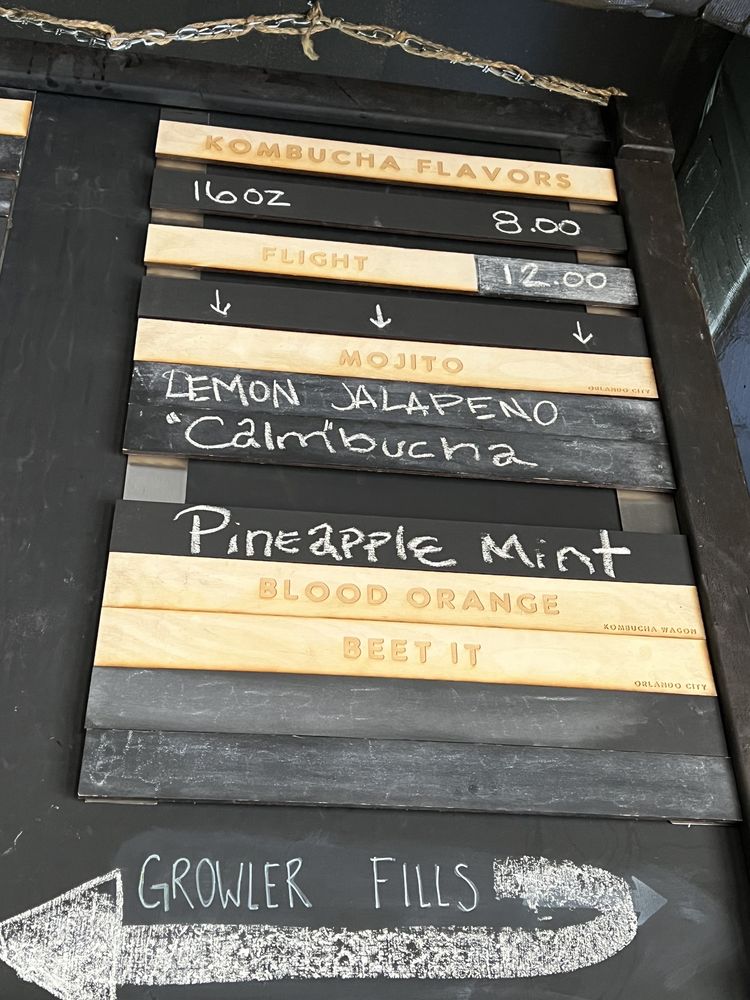 KOMBUCHA FLAVORS
16oz 8.00
FLIGHT 12.00
↓ ↓ ↓
MOJITO
ORLANDO CITY
LEMON JALAPENO
"Calm"bucha
Pineapple Mint
BLOOD ORANGE
KOMBUCHA WAGON
BEET IT
ORLANDO CITY
GROWLER FILLS